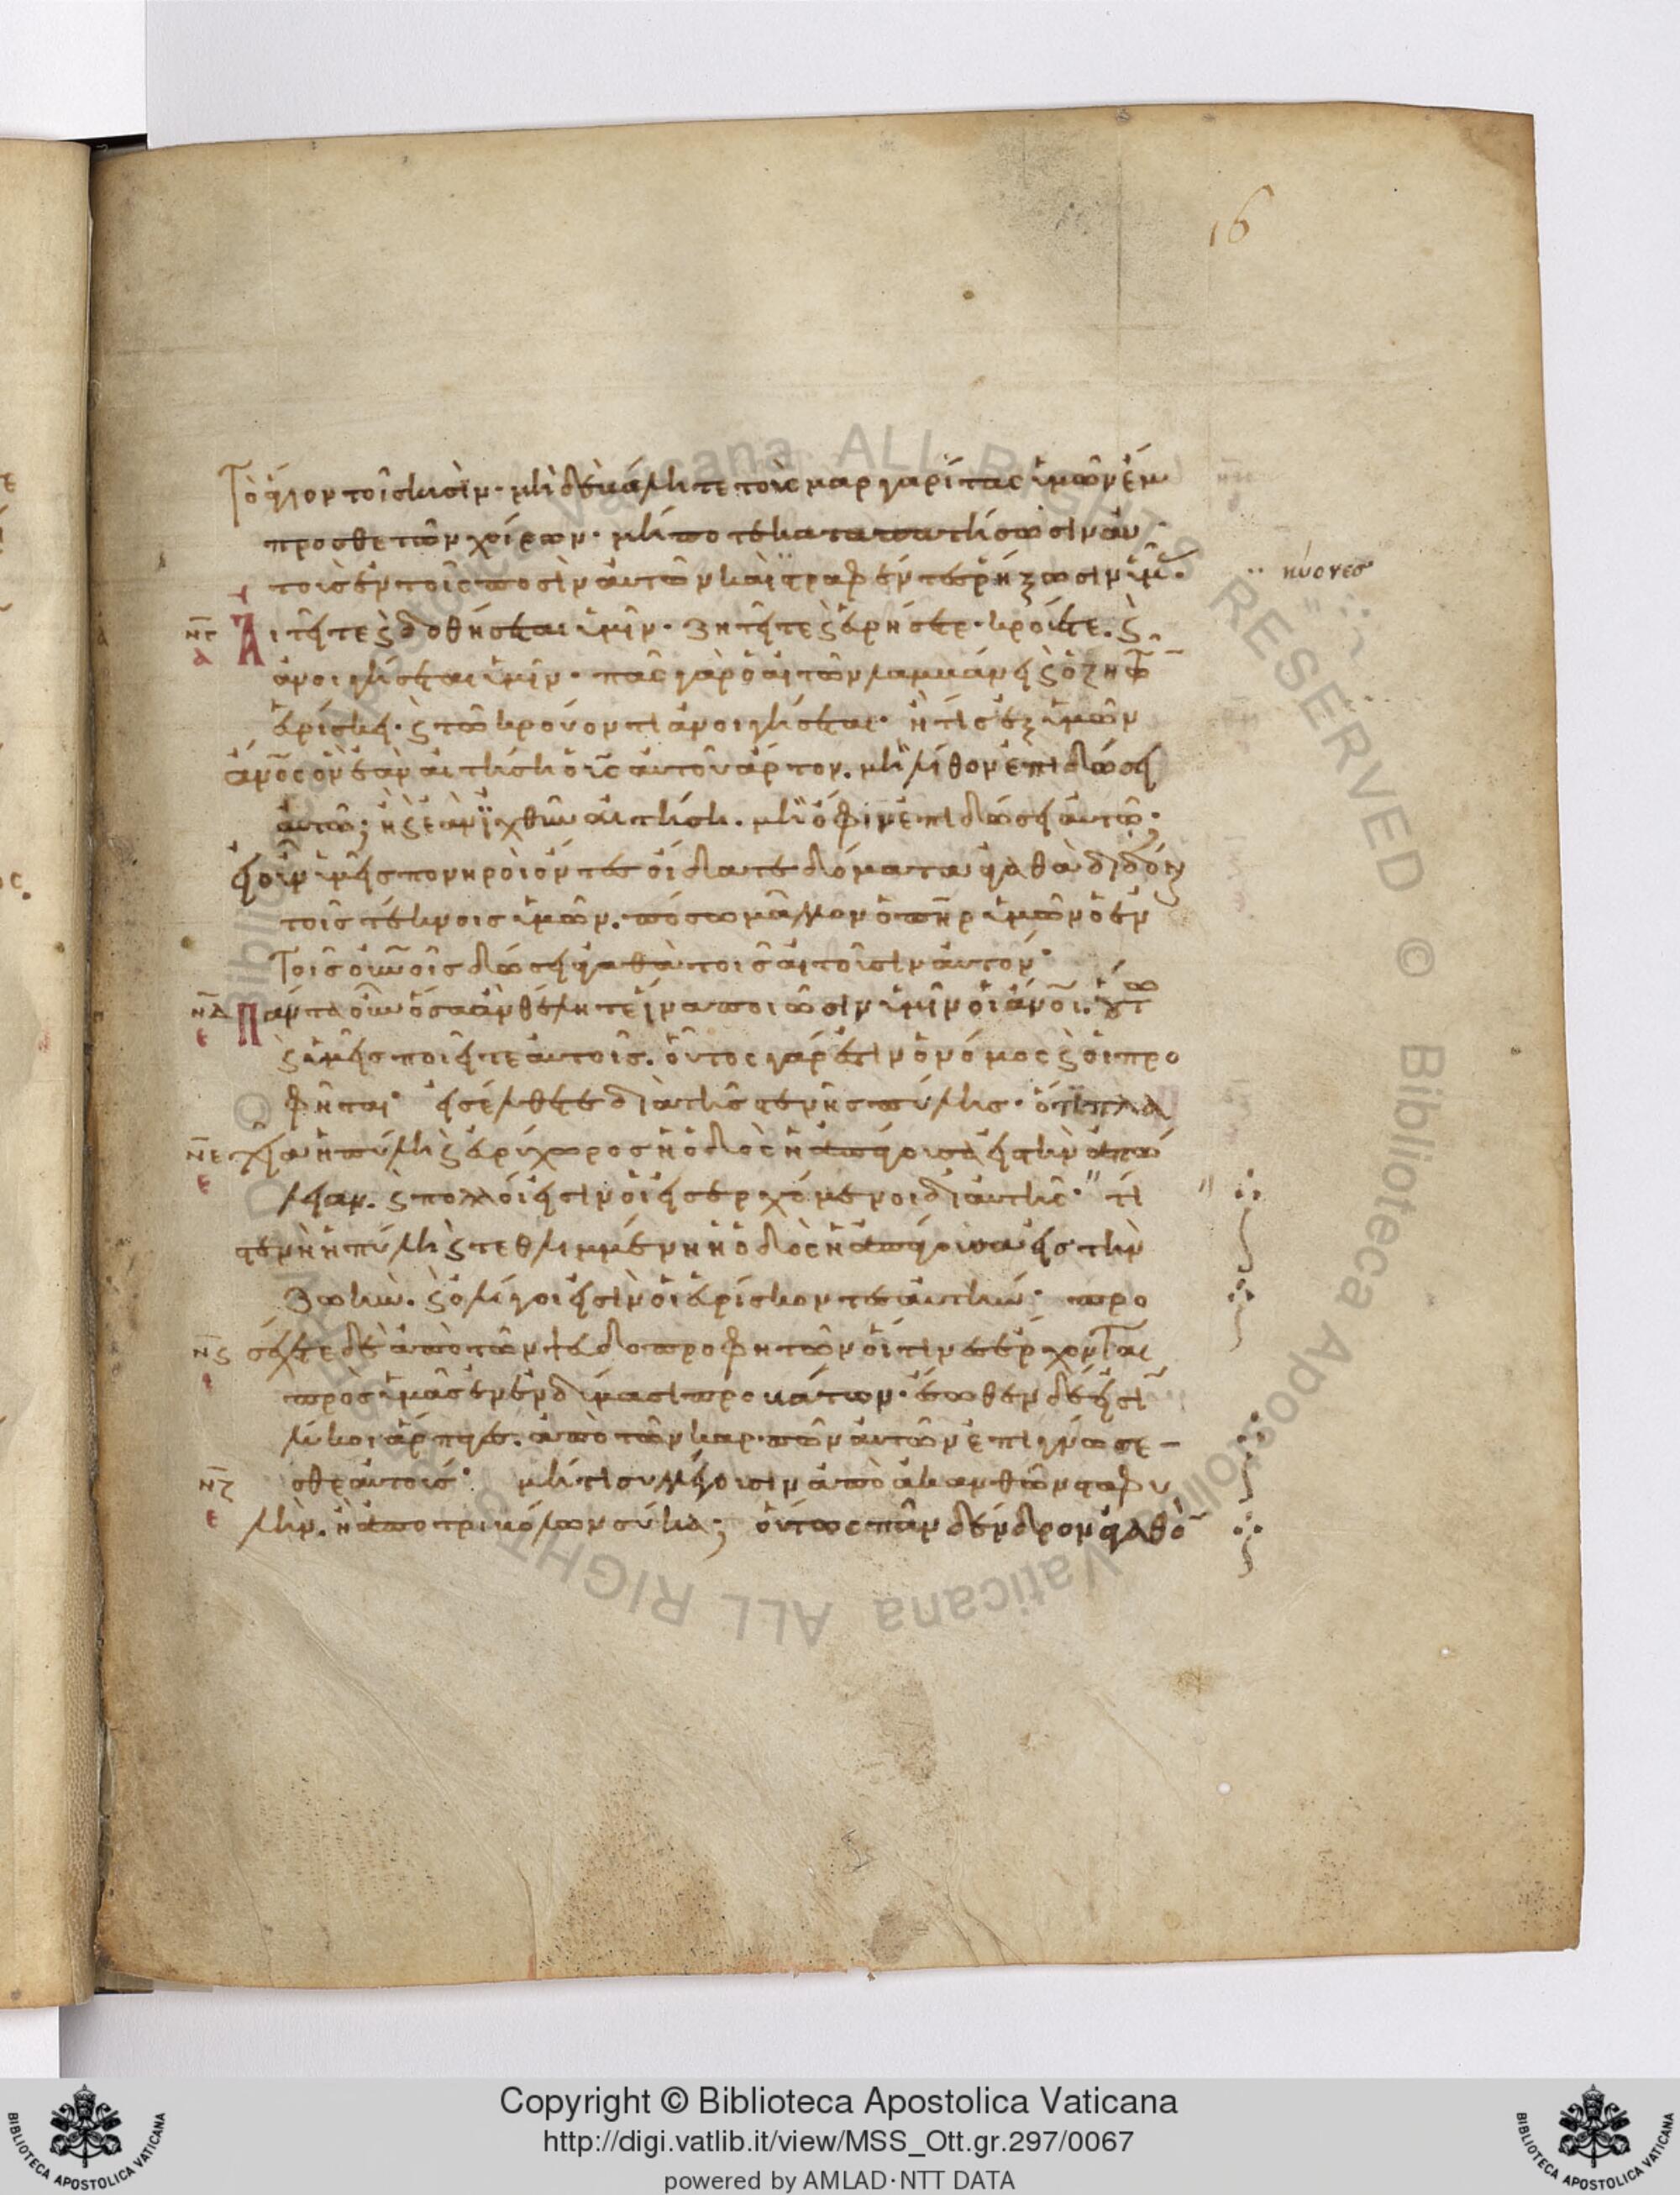 16
Τὸ ἅγιον τοῖς κυσὶν· μὴ δὲ βάλητε τοὺς μαργαρίτας ὑμῶν ἔμ
προσθε τῶν χοίρων· μήποτε καταπατήσωσιν αὐ
τοὺς ἐν τοῖς ποσὶν αὐτῶν καὶ στραφέντες ῥήξωσιν ὑμ̑.
·· κύονες
ν̅γ Αἰτεῖτε ϛ δοθήσεται ὑμῖν· ζητεῖτε ϛ εὑρήσετε· κρούετε. ϛ
α ἀνοιγήσεται ὑμῖν· πᾶς γὰρ ὁ αἰτῶν λαμβάνει ϛ ὁ ζητῶ̅
εὑρίσκει· ϛ τῶ κρούοντι ἀνοιγήσεται· ἢ τίς ἐξ ὑμῶν
ἄν̅ο̅ς ὃν ἐὰν αἰτήση ὁ υἱ̅ς αὐτοῦ ἄρτον. μὴ λίθον ἐπιδώσει
αὐτῶ; ἢ ϛ ἐὰν ἰχθὺν αἰτήση. μὴ ὄφιν ἐπιδώσει αὐτῶ;
εἰ οὖν ὑμεῖς πονηροὶ ὄντες οἴδατε δόματα ἀγαθὰ διδόναι
τοῖς τέκνοις ὑμῶν. πόσω μᾶλλον ὁ π̅η̅ρ ὑμῶν ὁ ἐν
Τοῖς οὐν̅οῖς δώσει ἀγαθὰ τοῖς αἰτοῦσιν αὐτόν·
ν̅δ Πάντα οὖν ὅσα ἂν θέλητε ἵνα ποιῶσιν ὑμῖν οἱ ἄν̅ο̅ι. οὕτω
ε ϛ ὑμεῖς ποιεῖτε αὐτοῖς. οὗτος γάρ ἐστιν ὁ νόμος ϛ οἱ προ
φῆται· εἰσέλθετε διὰ τῆς στενῆς πύλης· ὅτι πλα
ν̅ε τεῖα ἡ πύλη ϛ εὐρύχωρος ἡ ὁδὸς ἡ ἀπάγουσα εἰς τὴν ἀπώ
ε λειαν. ϛ πολλοί εἰσιν οἱ εἰσερχόμενοι δι αὐτῆς· τί
στενὴ ἡ πύλη ϛ τεθλιμμένη ἡ ὁδὸς ἡ ἀπάγουσα εἰς τὴν
ζωήν. ϛ ὀλίγοι εἰσὶν οἱ εὑρίσκοντες αὐτήν· προ
ν̅ϛ σέχετε δὲ ἀπὸ τῶν ψευδοπροφητῶν οἵτινες ἔρχονται
ι πρὸς ὑμᾶς ἐν ἐνδύμασι προβάτων· ἔσωθεν δέ εἰσι
λύκοι ἅρπαγες. ἀπὸ τῶν καρπῶν αὐτῶν ἐπιγνώσε–
ν̅ζ σθε αὐτούς· μήτι συλλέγουσιν ἀπὸ ἀκανθῶν σταφυ
ε λήν. ἢ ἀπὸ τριβόλων σύκα; οὕτως πᾶν δένδρον ἀγαθὸ̅
Copyright © Biblioteca Apostolica Vaticana
http://digi.vatlib.it/view/MSS_Ott.gr.297/0067
powered by AMLAD·NTT DATA
BIBLIOTECA APOSTOLICA VATICANA
BIBLIOTECA APOSTOLICA VATICANA
© Biblioteca Apostolica Vaticana ALL RIGHTS RESERVED © Biblioteca Apostolica Vaticana ALL RIGHTS RESERVED